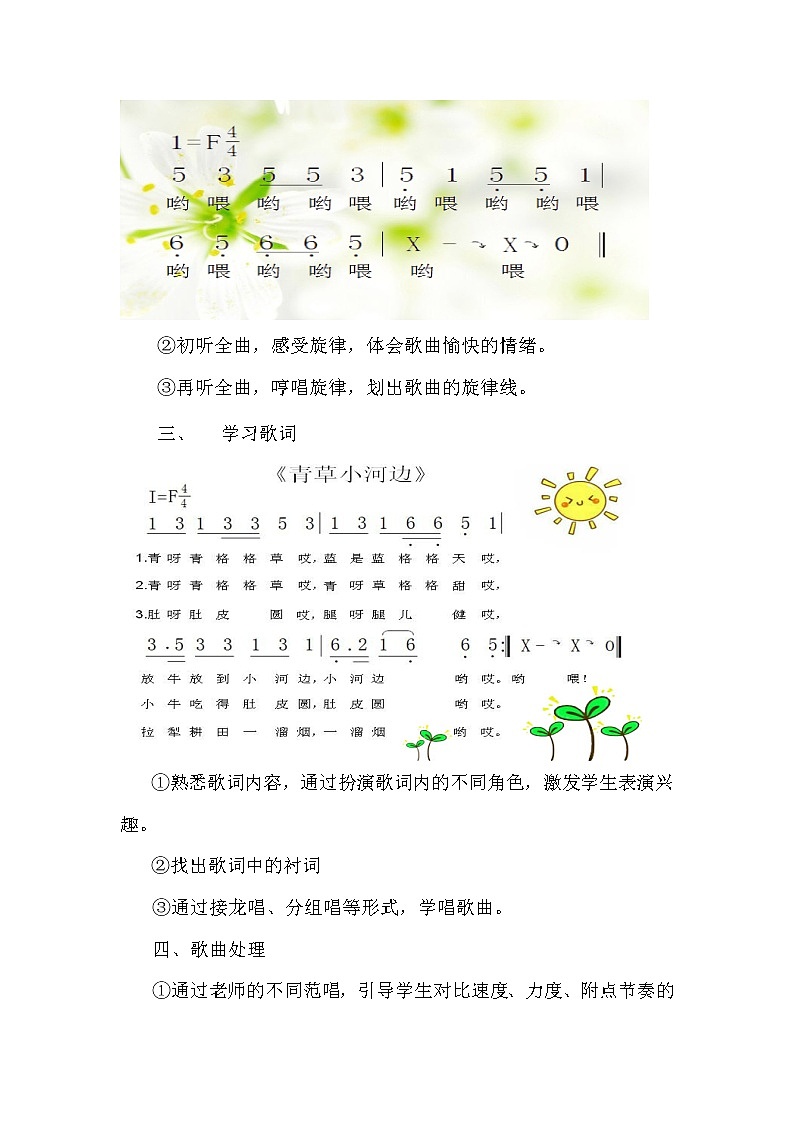 1=F 4/4
5 3 5 5 3 | 5 1 5 5 1 |
哟 喂 哟 哟 喂 哟 喂 哟 哟 喂
6 5 6 6 5 | X － ↘ X ↘ O ‖
哟 喂 哟 哟 喂 哟 喂
②初听全曲，感受旋律，体会歌曲愉快的情绪。
③再听全曲，哼唱旋律，划出歌曲的旋律线。
三、 学习歌词
《青草小河边》
I=F 4/4
1 3 1 3 3 5 3 | 1 3 1 6 6 5 1 |
1.青 呀 青 格 格 草 哎，蓝 是 蓝 格 格 天 哎，
2.青 呀 青 格 格 草 哎，青 呀 草 格 格 甜 哎，
3.肚 呀 肚 皮 圆 哎，腿 呀 腿 儿 健 哎，
3 . 5 3 3 1 3 1 | 6 . 2 1 6 6 5 :‖ X － ↘ X ↘ 0 ‖
放 牛 放 到 小 河 边，小 河 边 哟 哎。哟 喂！
小 牛 吃 得 肚 皮 圆，肚 皮 圆 哟 哎。
拉 犁 耕 田 一 溜 烟，一 溜 烟 哟 哎。
①熟悉歌词内容，通过扮演歌词内的不同角色，激发学生表演兴
趣。
②找出歌词中的衬词
③通过接龙唱、分组唱等形式，学唱歌曲。
四、歌曲处理
①通过老师的不同范唱，引导学生对比速度、力度、附点节奏的